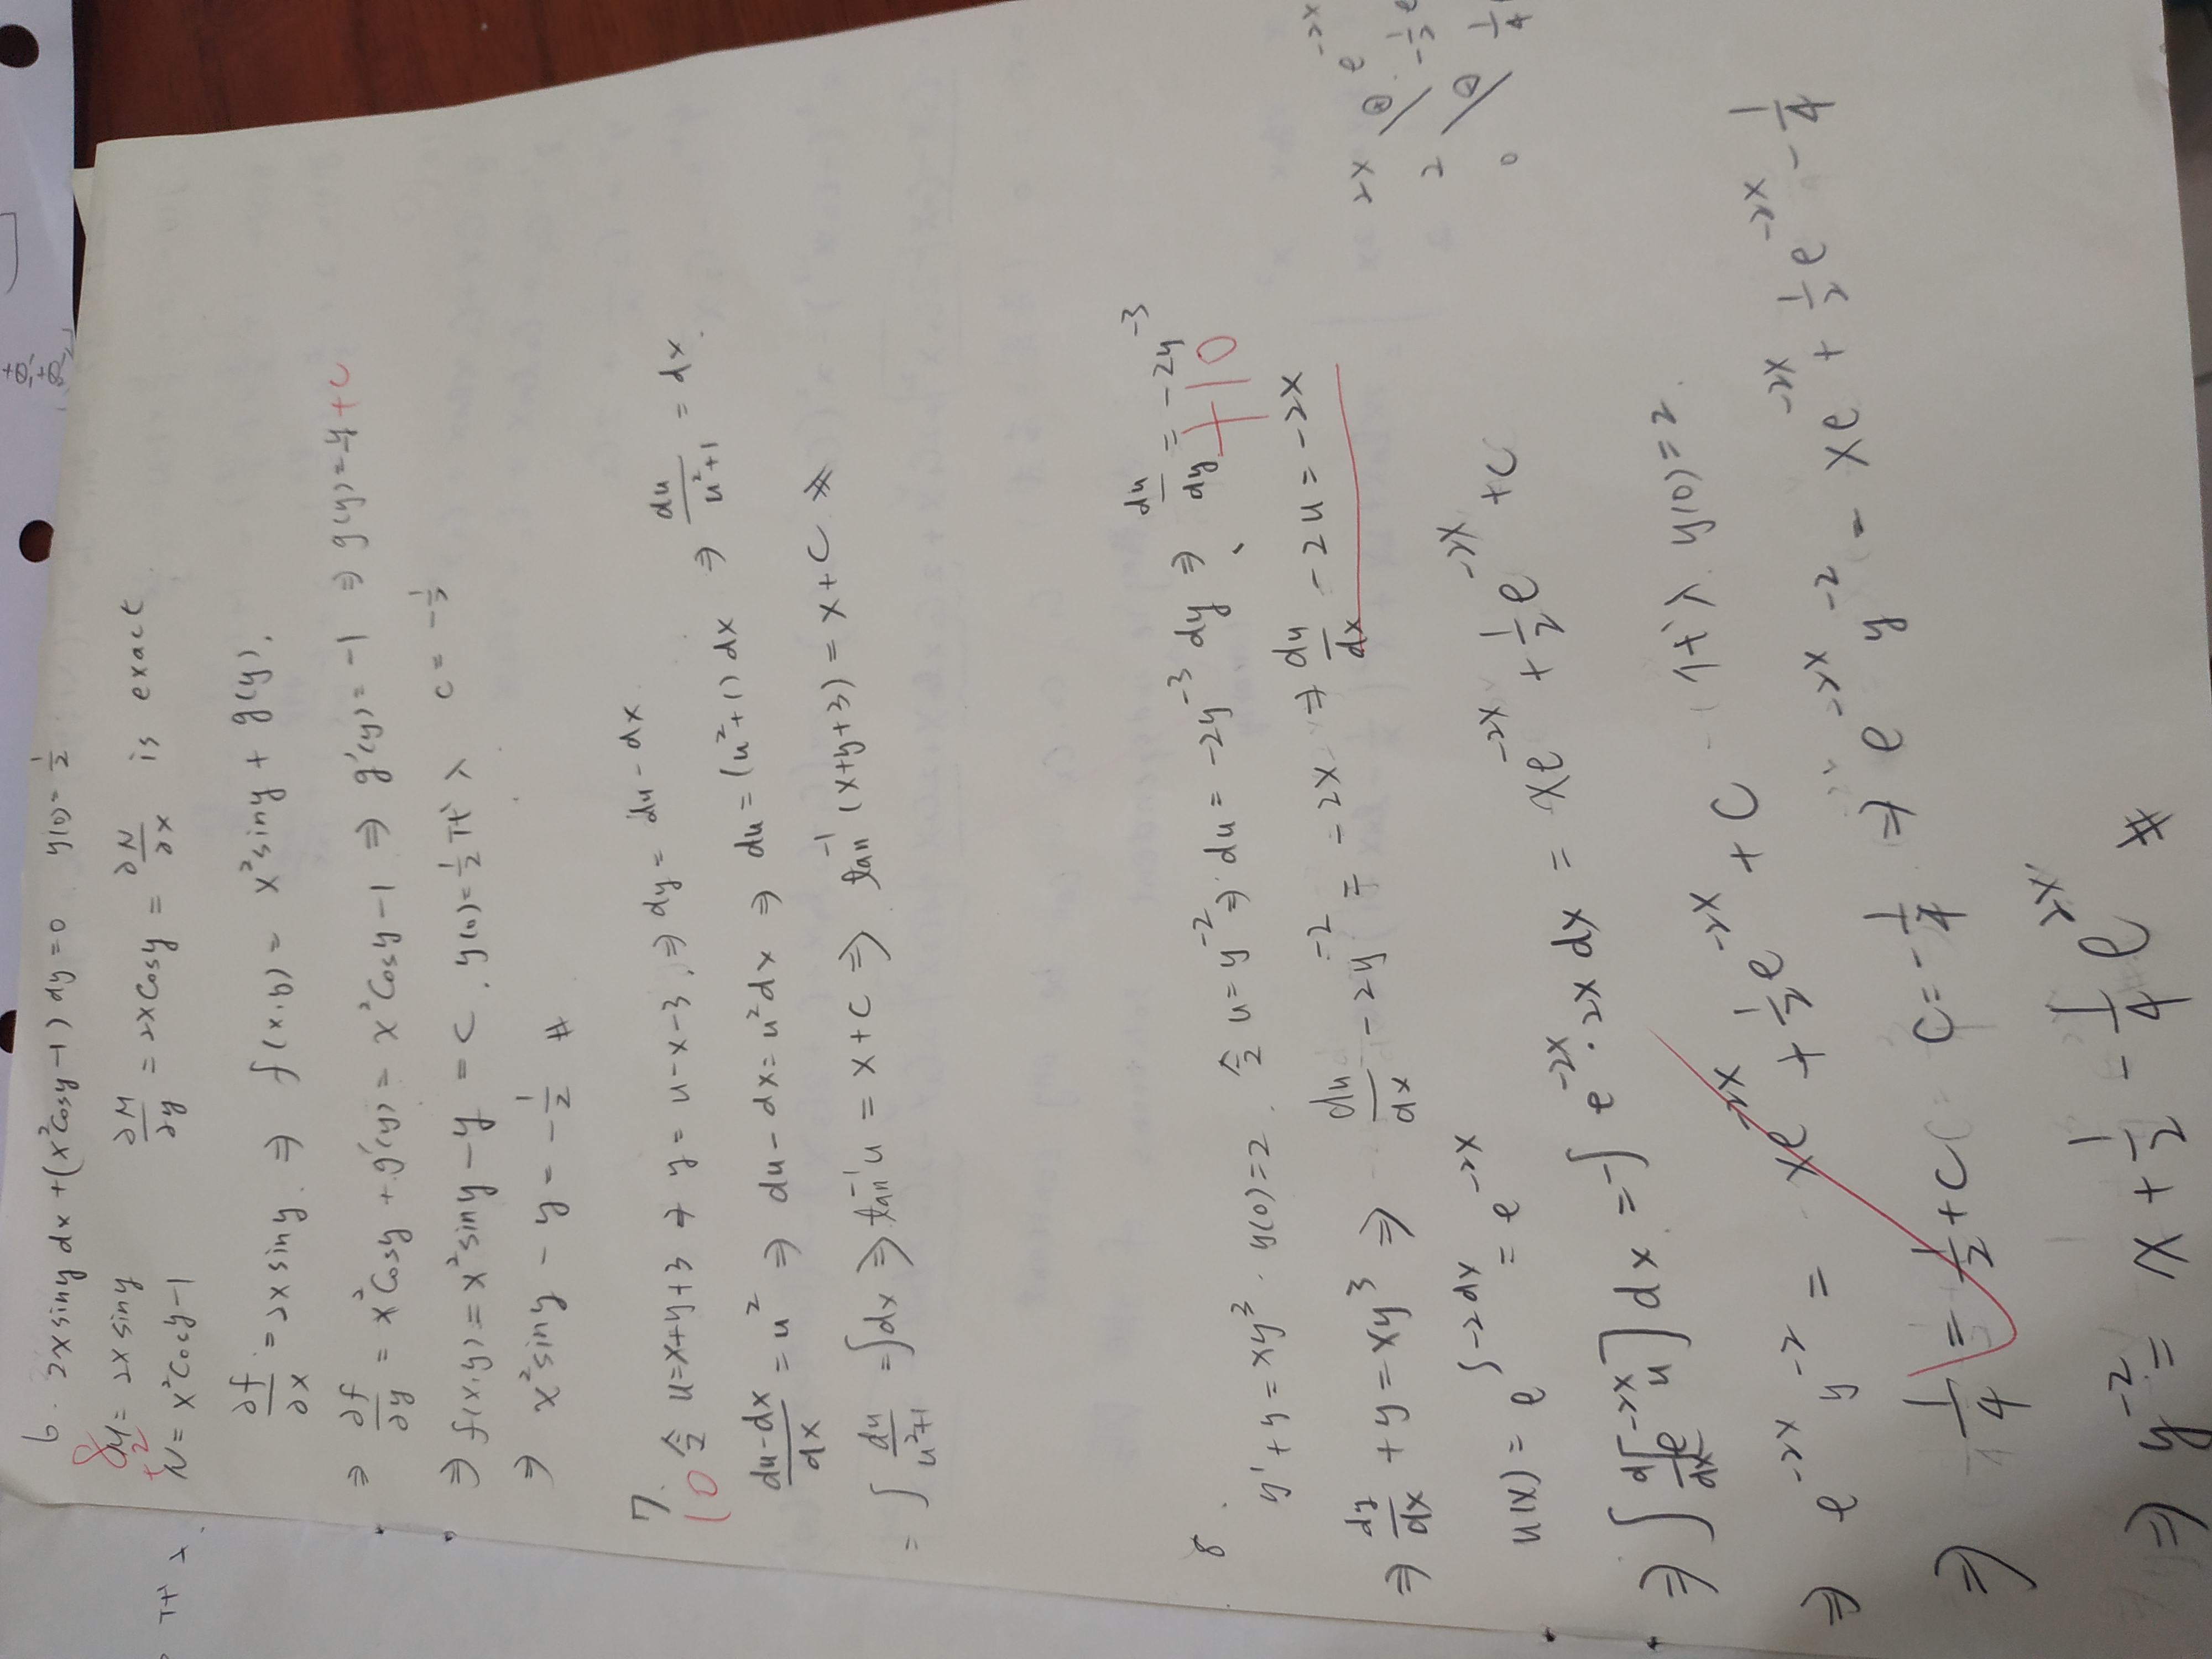 6. 2x siny dx + (x²cosy-1) dy = 0 y(0) = 1/2
8
M = 2x siny ∂M/∂y = 2x cosy = ∂N/∂x is exact
+2
N = x²cosy-1
代入
∂f/∂x = 2x siny. ⇒ f(x,y) = x²siny + g(y).
⇒ ∂f/∂y = x²cosy + g'(y) = x²cosy-1 ⇒ g'(y) = -1 ⇒ g(y) = -y + C
⇒ f(x,y) = x²siny - y = C. y(0) = 1/2 代入 C = -1/2
⇒ x²siny - y = -1/2 #
7.
10 令 u = x+y+3 ⇒ y = u-x-3. ⇒ dy = du-dx.
(du-dx)/dx = u² ⇒ du-dx = u²dx ⇒ du = (u²+1) dx ⇒ du/(u²+1) = dx.
= ∫ du/(u²+1) = ∫dx ⇒ tan⁻¹u = x+C ⇒ tan⁻¹(x+y+3) = x+C #
8.
y'+y = xy³. y(0)=2. 令 u = y⁻² ⇒ du = -2y⁻³ dy ⇒ du/dy = -2y⁻³
+10
⇒ dy/dx + y = xy³ ⇒ du/dx - 2y⁻² = -2x ⇒ du/dx - 2u = -2x
u(x) = e^(∫-2dx) = e^(-2x)
2x ⊕ e^(-2x)
2 ⊖ -1/2 e
0 1/4
⇒ ∫ d/dx[e^(-2x) u] dx = -∫ e^(-2x)·2x dx = xe^(-2x) + 1/2 e^(-2x) + C
⇒ e^(-2x) y⁻² = xe^(-2x) + 1/2 e^(-2x) + C 代入 y(0)=2.
⇒ 1/4 = 1/2 + C C = -1/4. ⇒ e^(-2x) y⁻² = xe^(-2x) + 1/2 e^(-2x) - 1/4
⇒ y⁻² = x + 1/2 - 1/4 e^(2x) #